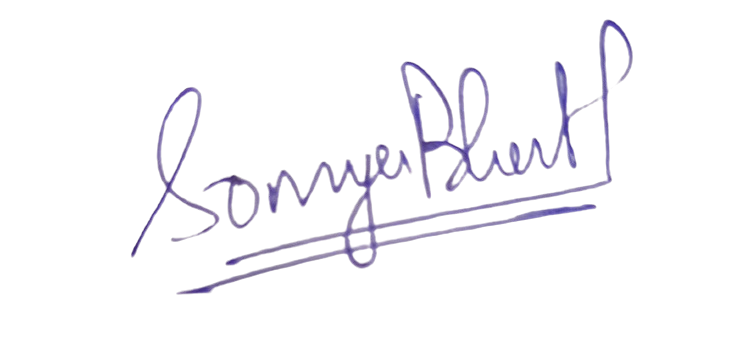 Somya Bhatt